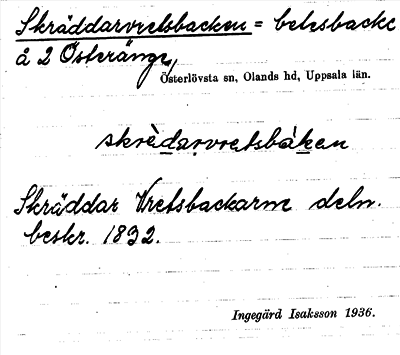 Skräddarvretsbacken = betesbacke
å 2 Österänge,
Österlövsta sn, Olands hd, Uppsala län.
skrèdarvretsbàken
Skräddar Vretsbackarne deln.
beskr. 1832.
Ingegärd Isaksson 1936.